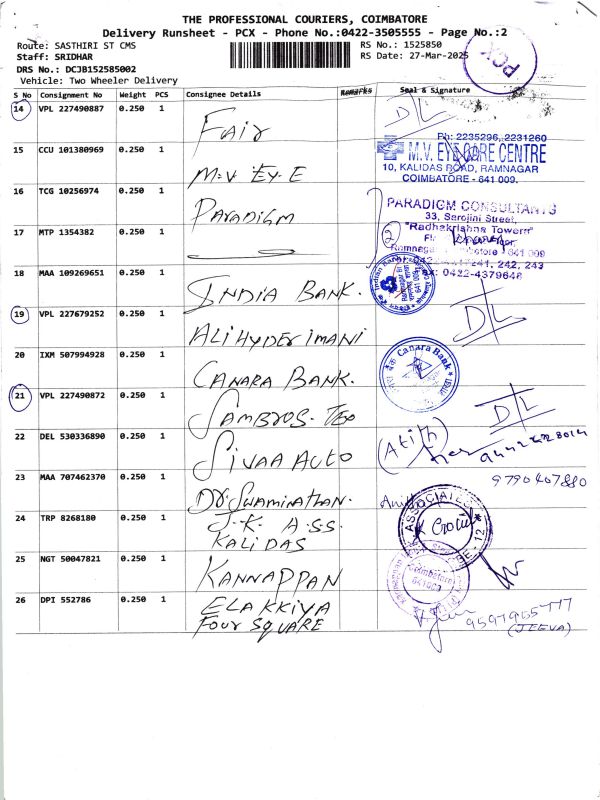 THE PROFESSIONAL COURIERS, COIMBATORE
Delivery Runsheet - PCX - Phone No.:0422-3505555 - Page No.:2
Route: SASTHIRI ST CMS
RS No.: 1525850
Staff: SRIDHAR
RS Date: 27-Mar-2025
PCX
DRS No.: DCJB152585002
Vehicle: Two Wheeler Delivery
S No Consignment No Weight PCS Consignee Details Remarks Seal & Signature
14 VPL 227490887 0.250 1 Fair D/L
15 CCU 101380969 0.250 1 M.V EYE
Ph: 2235296, 2231260
M.V. EYE CARE CENTRE
10, KALIDAS ROAD, RAMNAGAR
COIMBATORE - 641 009.
16 TCG 10256974 0.250 1 Paradigm
PARADIGM CONSULTANTS
33, Sarojini Street,
"Radhakrishna Towers"
17 MTP 1354382 0.250 1
2
18 MAA 109269651 0.250 1 INDIA BANK.
Indian Bank
19 VPL 227679252 0.250 1 ALIHYDER IMANI D/L
20 IXM 507994928 0.250 1 CANARA BANK.
Canara Bank
21 VPL 227490872 0.250 1 SAMBROS. TEX D/L
22 DEL 530336890 0.250 1 SIVAA AUTO
23 MAA 707462370 0.250 1 DR. SWAMINATHAN.
9790407880
24 TRP 8268180 0.250 1 J.K. ASS.
KALIDAS
ASSOCIATES
25 NGT 50047821 0.250 1 KANNAPPAN
Coimbatore
641009
26 DPI 552786 0.250 1 ELAKKIYA
FOUR SQUARE
9597955777
(JEEVA)